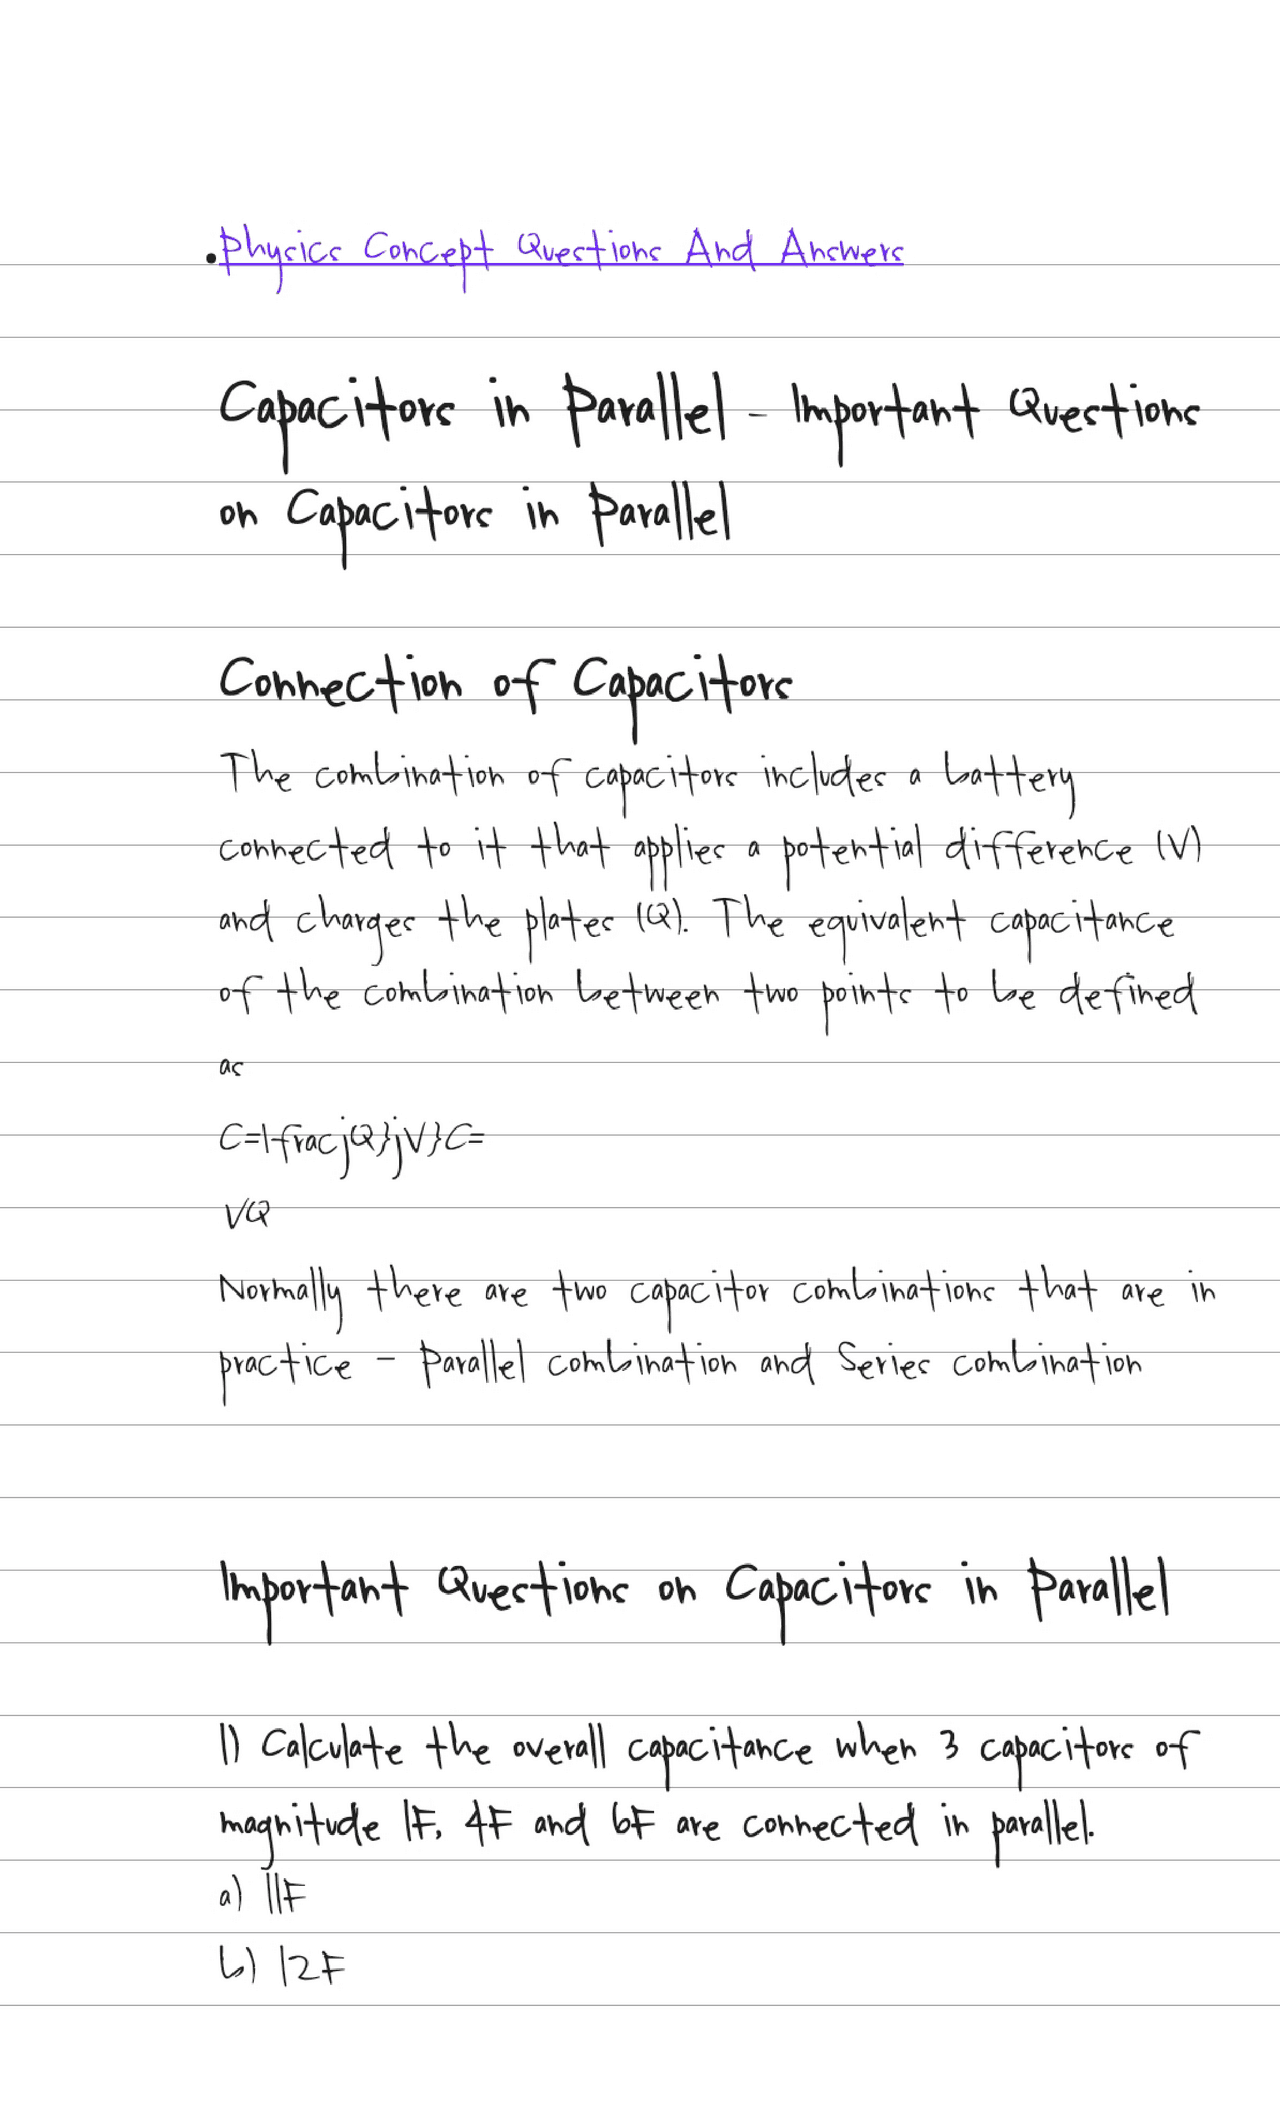 .Physics Concept Questions And Answers
Capacitors in Parallel - Important Questions
on Capacitors in Parallel
Connection of Capacitors
The combination of capacitors includes a battery
connected to it that applies a potential difference (V)
and charges the plates (Q). The equivalent capacitance
of the combination between two points to be defined
as
C=\frac{Q}{V}C=
VQ
Normally there are two capacitor combinations that are in
practice - Parallel combination and Series combination
Important Questions on Capacitors in Parallel
1) Calculate the overall capacitance when 3 capacitors of
magnitude 1F, 4F and 6F are connected in parallel.
a) 11F
b) 12F